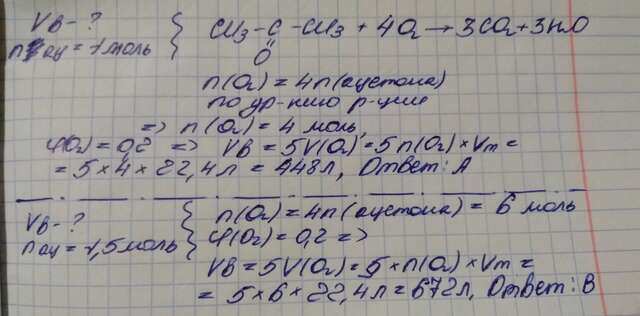 Vв - ?
nац = 1 моль
CH3 - C - CH3 + 4O2 → 3CO2 + 3H2O
O
n(O2) = 4n(ацетона)
по ур-нию р-ции
=> n(O2) = 4 моль,
φ(O2) = 0,2 => Vв = 5V(O2) = 5n(O2) × Vm =
= 5 × 4 × 22,4л = 448л, Ответ: А
Vв - ?
nац = 1,5 моль
n(O2) = 4n(ацетона) = 6 моль
φ(O2) = 0,2 =>
Vв = 5V(O2) = 5 × n(O2) × Vm =
= 5 × 6 × 22,4л = 672л, Ответ: В